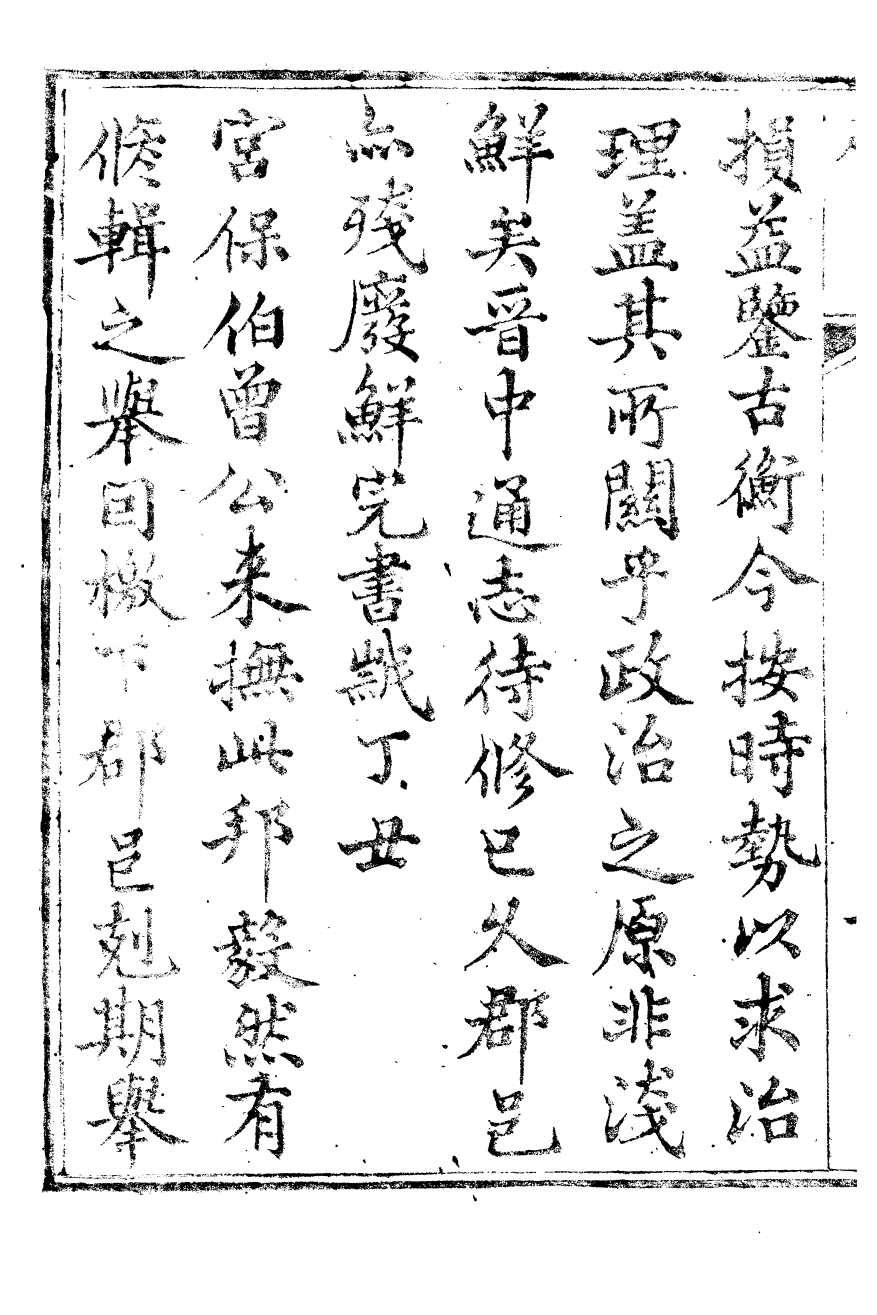 損益鑒古衡今按時勢以求治
理盖其所關乎政治之原非淺
鮮矣晉中通志待修已久郡邑
亦殘廢鮮完書歲丁丑
宮保伯曾公来撫此邦毅然有
修輯之舉回檄下郡邑剋期舉